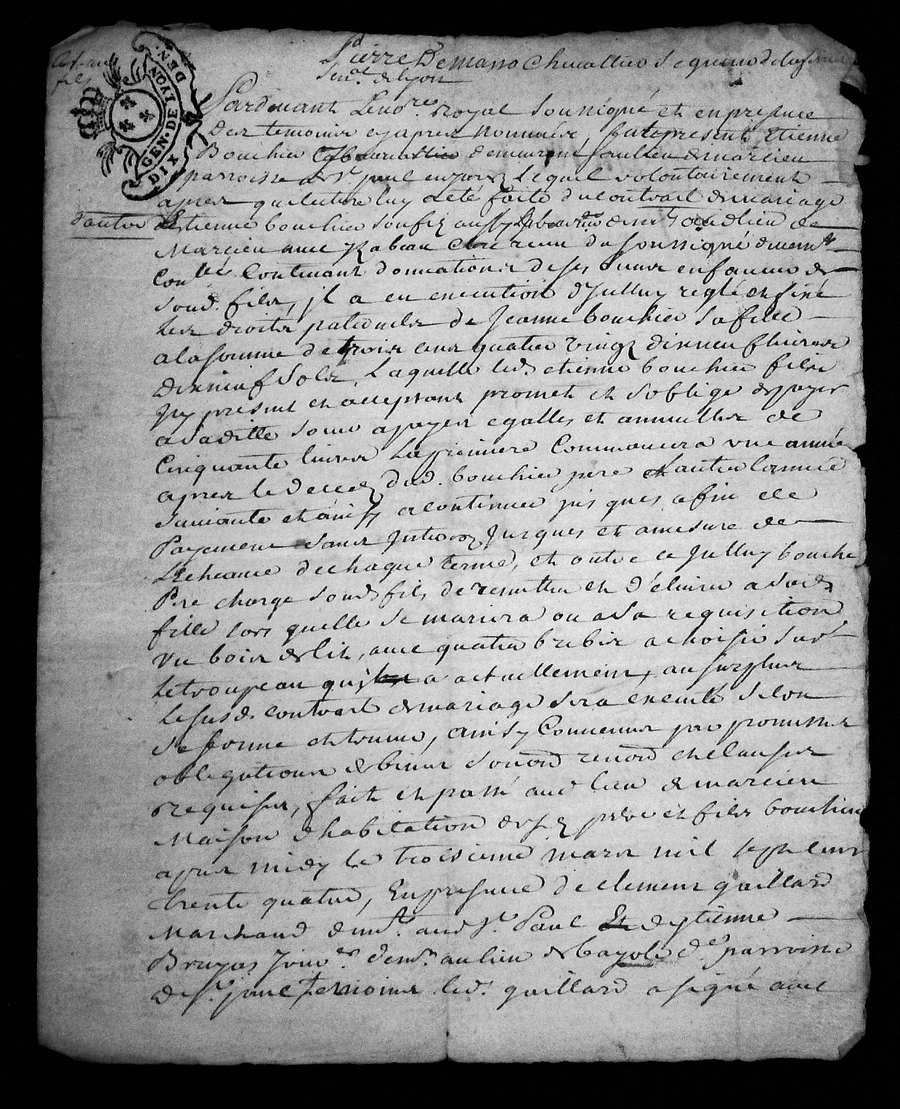 Pierre Demano Chevallier
Sen.al de Lyon
GEN. DE LYON DEN. DIX
Pardevant Le no.re royal soussigné et en presence
des temoins cy apres nommés, fut present Etienne
Bouchier demeurant au lieu de marcieu
parroisse de S.t paul en Lequel volontairement
apres que lecture luy a été faite du contrat de mariage
d'autre Etienne bouchier son fils aussy dud. lieu de
Marcieu avec recu du soussigné
contenant donation de ses biens en faveur de
soud. fils, il a en execution d'jcelluy reglé et fixé
les droits paternels de Jeanne bouchier sa fille
a la somme de trois cens quatre vingt dix neuf livres
dix neuf sols, Laquelle led. etienne bouchier fils
jcy present et acceptant promet et s'oblige de payer
a sad. fille sous a payes egalles et annuelles de
Cinquante livres La premiere Commencera une année
apres le deces dud. bouchier pere et l'autre l'année
suivante et ainsy a continuer jusques a fin de
Payement sans jnterets jusques et a mesure de
L'echeance de chaque terme, et outre ce jcelluy bouchier
Pere charge soud. fils de remettre et d'elivrer a sad.
fille lors quelle se mariera ou a sa requisition
un bois de lit, avec quatre brebis a choisir sur
le troupeau qu'il a actuellement, au surplus
Le susd. contrat de mariage sera executé selon
sa forme et teneur, ainsy Convenu par promesses
obligations de biens renonc.ons et clauses
requises, fait et passé aud. lieu de marcieu
Maison d'habitation desd. pere et fils bouchier
apres midy le troisieme mars mil sept cent
trente quatre, En presence de clement gaillard
Marchand dem.t aud. S.t Paul Et d'etienne
Bruyas dem.t au lieu de parroisse
de S.t paul temoins led. gaillard a signé avec